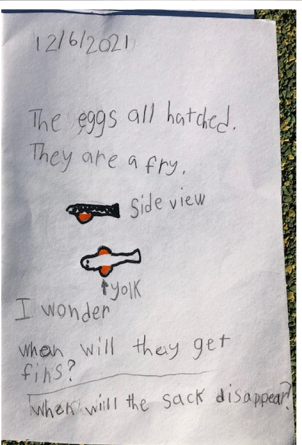 12/6/2021
The eggs all hatched.
They are a fry.
Side view
yolk
I wonder
when will they get
fins?
when will the sack disappear?